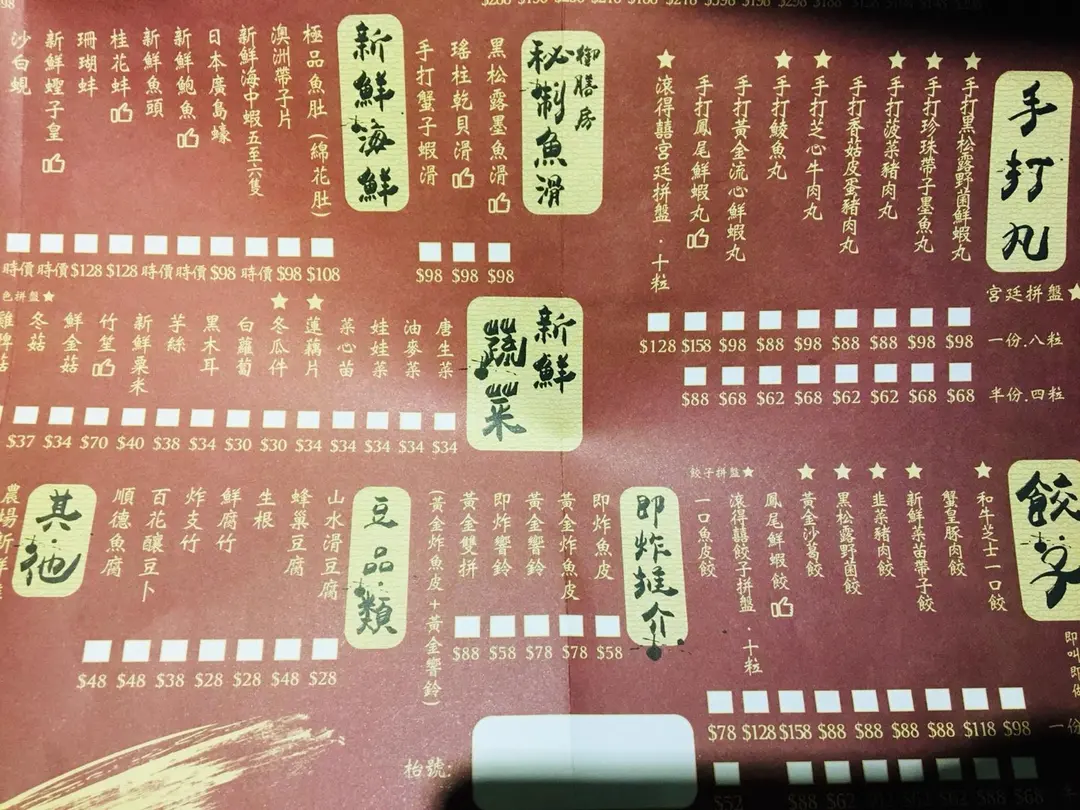 手打丸
宮廷拼盤★
★手打黑松露野菌鮮蝦丸
★手打珍珠帶子墨魚丸
★手打菠菜豬肉丸
手打香菇皮蛋豬肉丸
★手打芝心牛肉丸
★手打鯪魚丸
手打黃金流心鮮蝦丸
手打鳳尾鮮蝦丸
★滾得囍宮廷拼盤．十粒
$128 $158 $98 $88 $98 $88 $88 $98 $98 一份.八粒
$88 $68 $62 $68 $62 $62 $68 $68 半份.四粒
御膳房
秘制魚滑
黑松露墨魚滑
瑤柱乾貝滑
手打蟹子蝦滑
$98 $98 $98
新鮮海鮮
極品魚肚(綿花肚)
澳洲帶子片
新鮮海中蝦五至六隻
日本廣島蠔
新鮮鮑魚
新鮮魚頭
桂花蚌
珊瑚蚌
新鮮蟶子皇
沙白蜆
時價 時價 $128 $128 時價 時價 $98 時價 $98 $108
新鮮蔬菜
唐生菜
油麥菜
娃娃菜
菜心苗
★蓮藕片
★冬瓜件
白蘿蔔
黑木耳
芋絲
新鮮粟米
竹笙
鮮金菇
冬菇
色拼盤★
$37 $34 $70 $40 $38 $34 $30 $30 $34 $34 $34 $34 $34
餃子
即叫即
★和牛芝士一口餃
蟹皇豚肉餃
★新鮮菜苗帶子餃
★韭菜豬肉餃
★黑松露野菌餃
★黃金沙葛餃
鳳尾鮮蝦餃
餃子拼盤★
滾得囍餃子拼盤．十粒
一口魚皮餃
$78 $128 $158 $88 $88 $88 $88 $118 $98 一份
即炸推介
即炸魚皮
黃金炸魚皮
黃金響鈴
即炸響鈴
黃金雙拼
(黃金炸魚皮+黃金響鈴)
$88 $58 $78 $78 $58
豆品類
山水滑豆腐
蜂巢豆腐
生根
鮮腐竹
炸支竹
百花釀豆卜
順德魚腐
$48 $48 $38 $28 $28 $48 $28
其他
枱號: